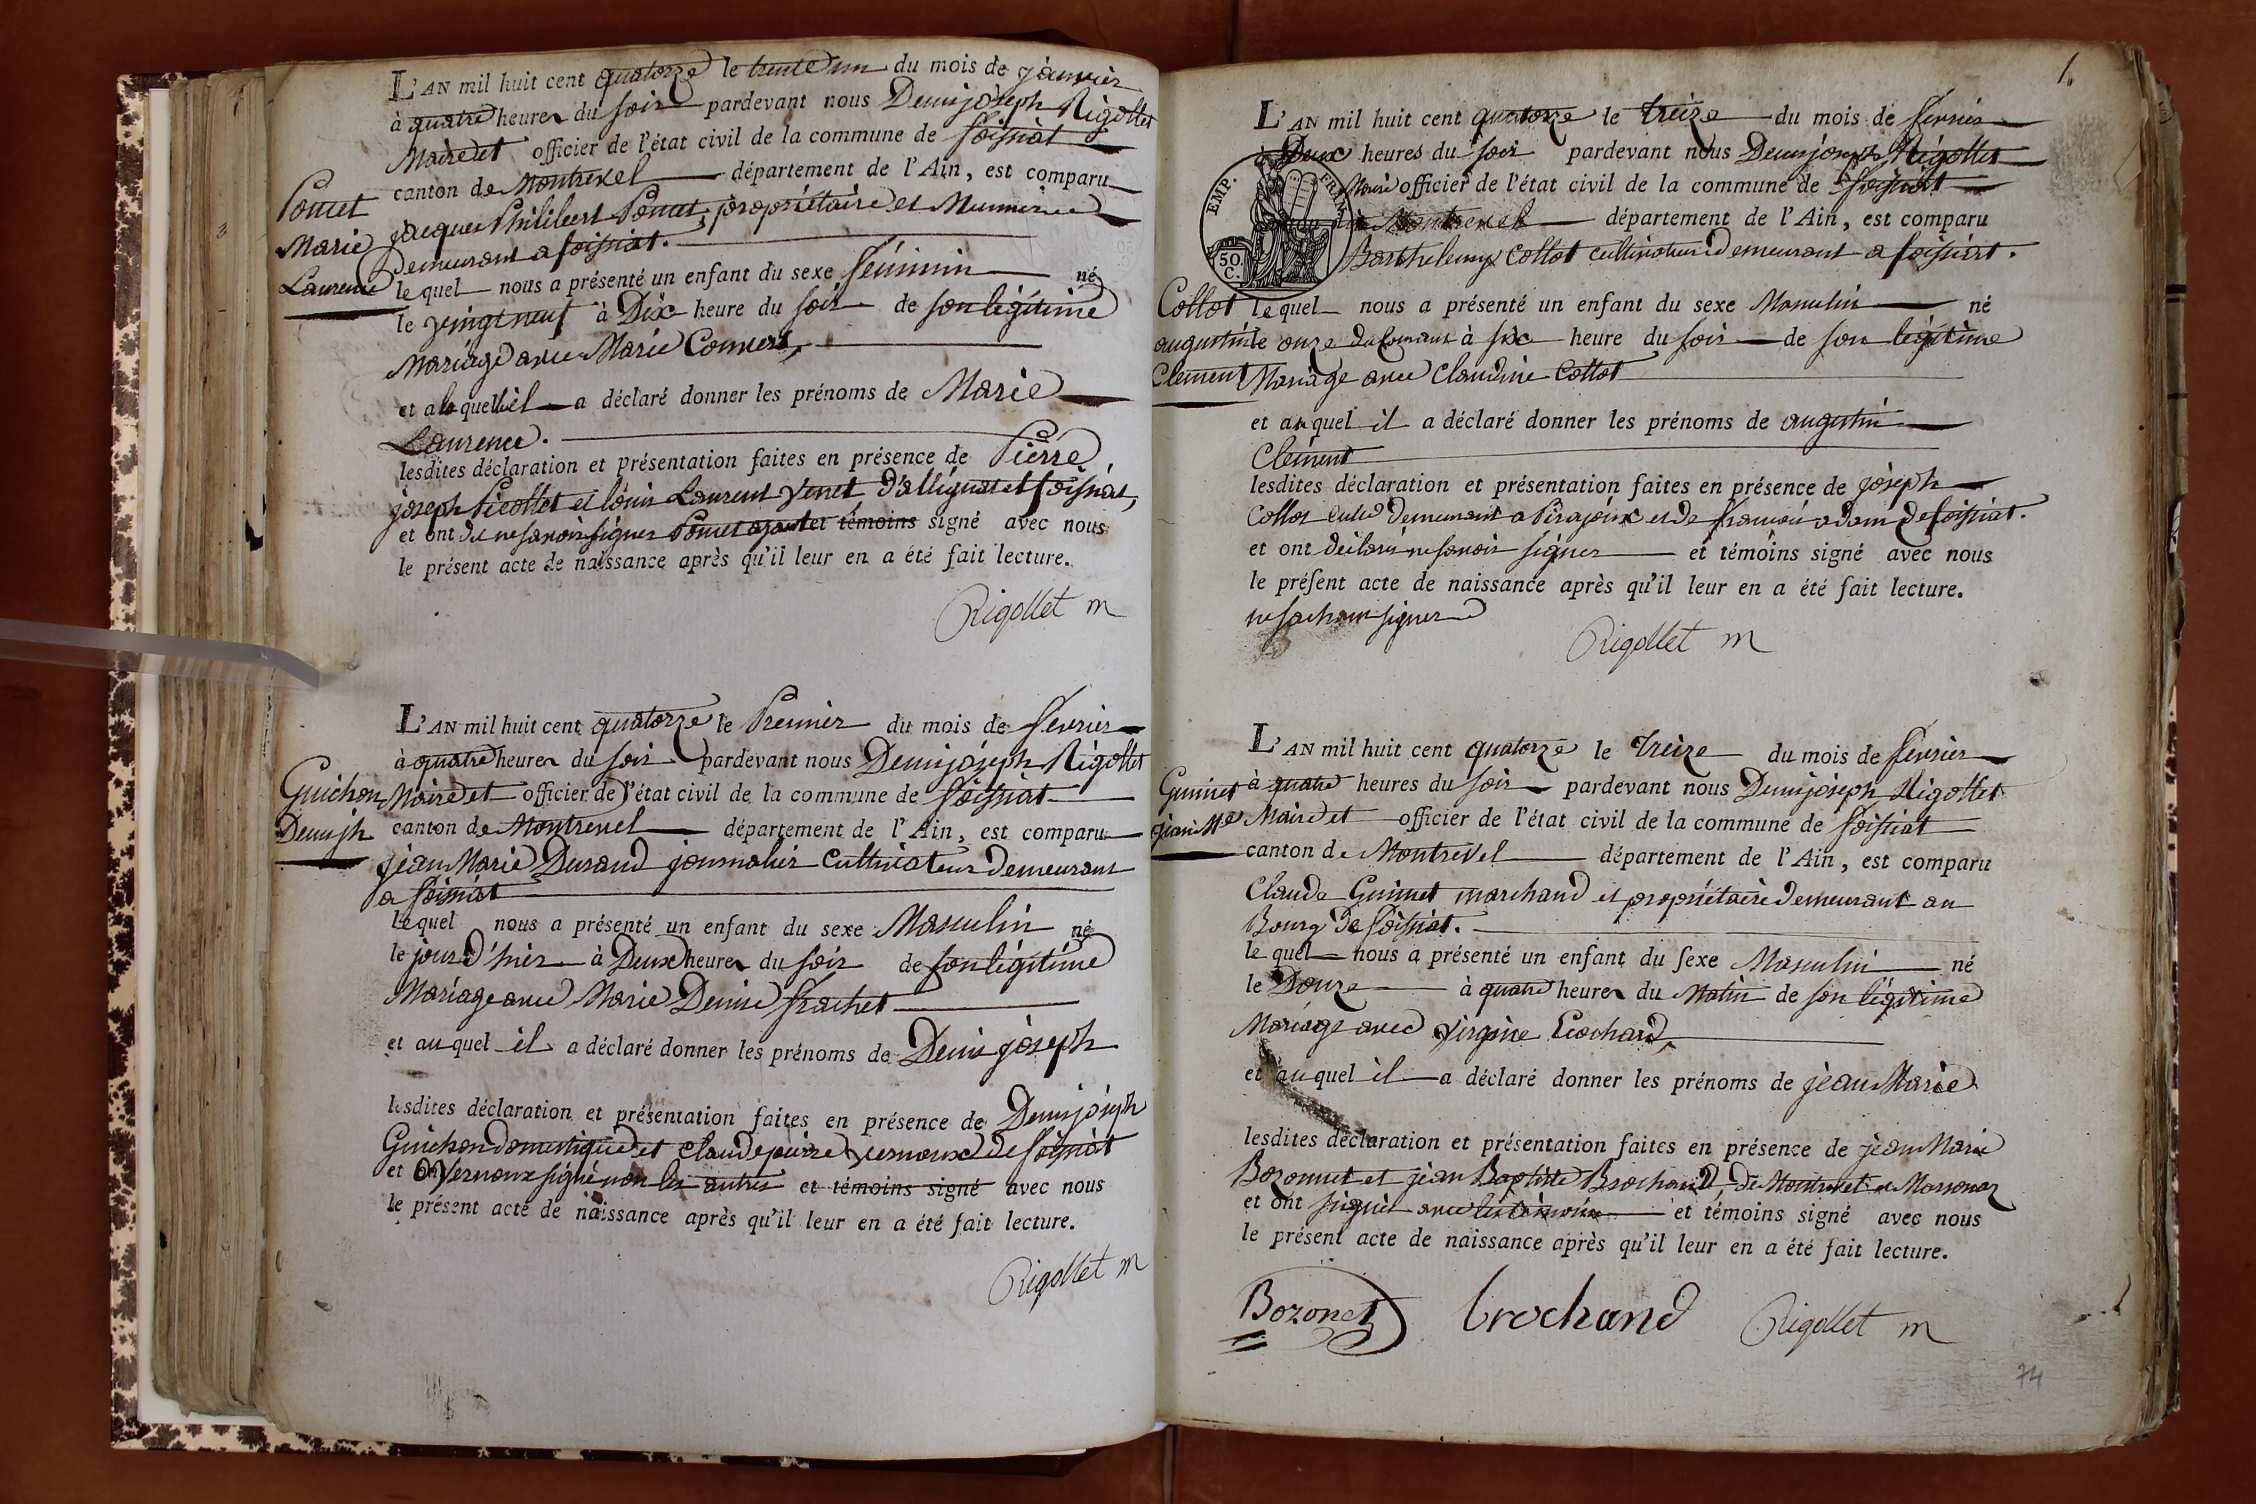 L'AN mil huit cent quatorze le trente un du mois de janvier
à quatre heures du soir pardevant nous Denis joseph Rigollet
Maire et officier de l'état civil de la commune de foissiat
canton de Montrevel département de l'Ain, est comparu
Pomet
Marie
Laurence
jacques Philibert Pomet, propriétaire et Meunier
demeurant a foissiat.
lequel nous a présenté un enfant du sexe féminin né
le vingt neuf à Dix heure du soir de son légitime
Mariage avec Marie Convert,
et a laquelle il a déclaré donner les prénoms de Marie
Laurence.
lesdites déclaration et présentation faites en présence de Pierre
joseph Picollet et louis Laurent Venet d'attignat et foissiat,
et ont dit ne savoir signer Pomet et témoins signé avec nous
le présent acte de naissance après qu'il leur en a été fait lecture.
Rigollet m
L'AN mil huit cent quatorze le Premier du mois de fevrier
à quatre heures du soir pardevant nous Denis joseph Rigollet
Guichon
Denis jh
Maire et officier de l'état civil de la commune de foissiat
canton de Montrevel département de l'Ain, est comparu
jean Marie Durand journalier cultivateur demeurant
a foissiat
lequel nous a présenté un enfant du sexe Masculin né
le jour d'hier à Deux heures du soir de son légitime
Mariage avec Marie Denise frachet
et auquel il a déclaré donner les prénoms de Denis joseph
lesdites déclaration et présentation faites en présence de Denis joseph
Guichon domestique et claude pierre Vernoux de foissiat
et ont Vernoux signé non les autres et témoins signé avec nous
le présent acte de naissance après qu'il leur en a été fait lecture.
Rigollet m
1.
L'AN mil huit cent quatorze le treize du mois de fevrier
à Deux heures du soir pardevant nous Denis joseph Rigollet
Maire officier de l'état civil de la commune de foissiat
EMP. FRAN.
50.
C.
Montrevel département de l'Ain, est comparu
Barthelemy Collot cultivateur demeurant a foissiat.
Collot
augustin
Clement
lequel nous a présenté un enfant du sexe Masculin né
le onze du Courant à six heure du soir de son légitime
Mariage avec Claudine Collot
et auquel il a déclaré donner les prénoms de augustin
Clément
lesdites déclaration et présentation faites en présence de joseph
Collot demeurant a Pirajoux et de françois adam de foissiat.
et ont déclaré ne savoir signer et témoins signé avec nous
le présent acte de naissance après qu'il leur en a été fait lecture.
ne sachant signer
Rigollet m
L'AN mil huit cent quatorze le treize du mois de fevrier
à quatre heures du soir pardevant nous Denis joseph Rigollet
Guinet
jean Me
Maire et officier de l'état civil de la commune de foissiat
canton de Montrevel département de l'Ain, est comparu
Claude Guinet marchand et propriétaire demeurant au
Bourg de foissiat.
lequel nous a présenté un enfant du sexe Masculin né
le Douze à quatre heures du Matin de son légitime
Mariage avec Virginie Brochard,
et auquel il a déclaré donner les prénoms de jean Marie
lesdites déclaration et présentation faites en présence de jean Marie
Bozonnet et jean Baptiste Brochand, de Montrevel et Marsonnaz
et ont signé avec les témoins et témoins signé avec nous
le présent acte de naissance après qu'il leur en a été fait lecture.
Bozonet brochand Rigollet m
74